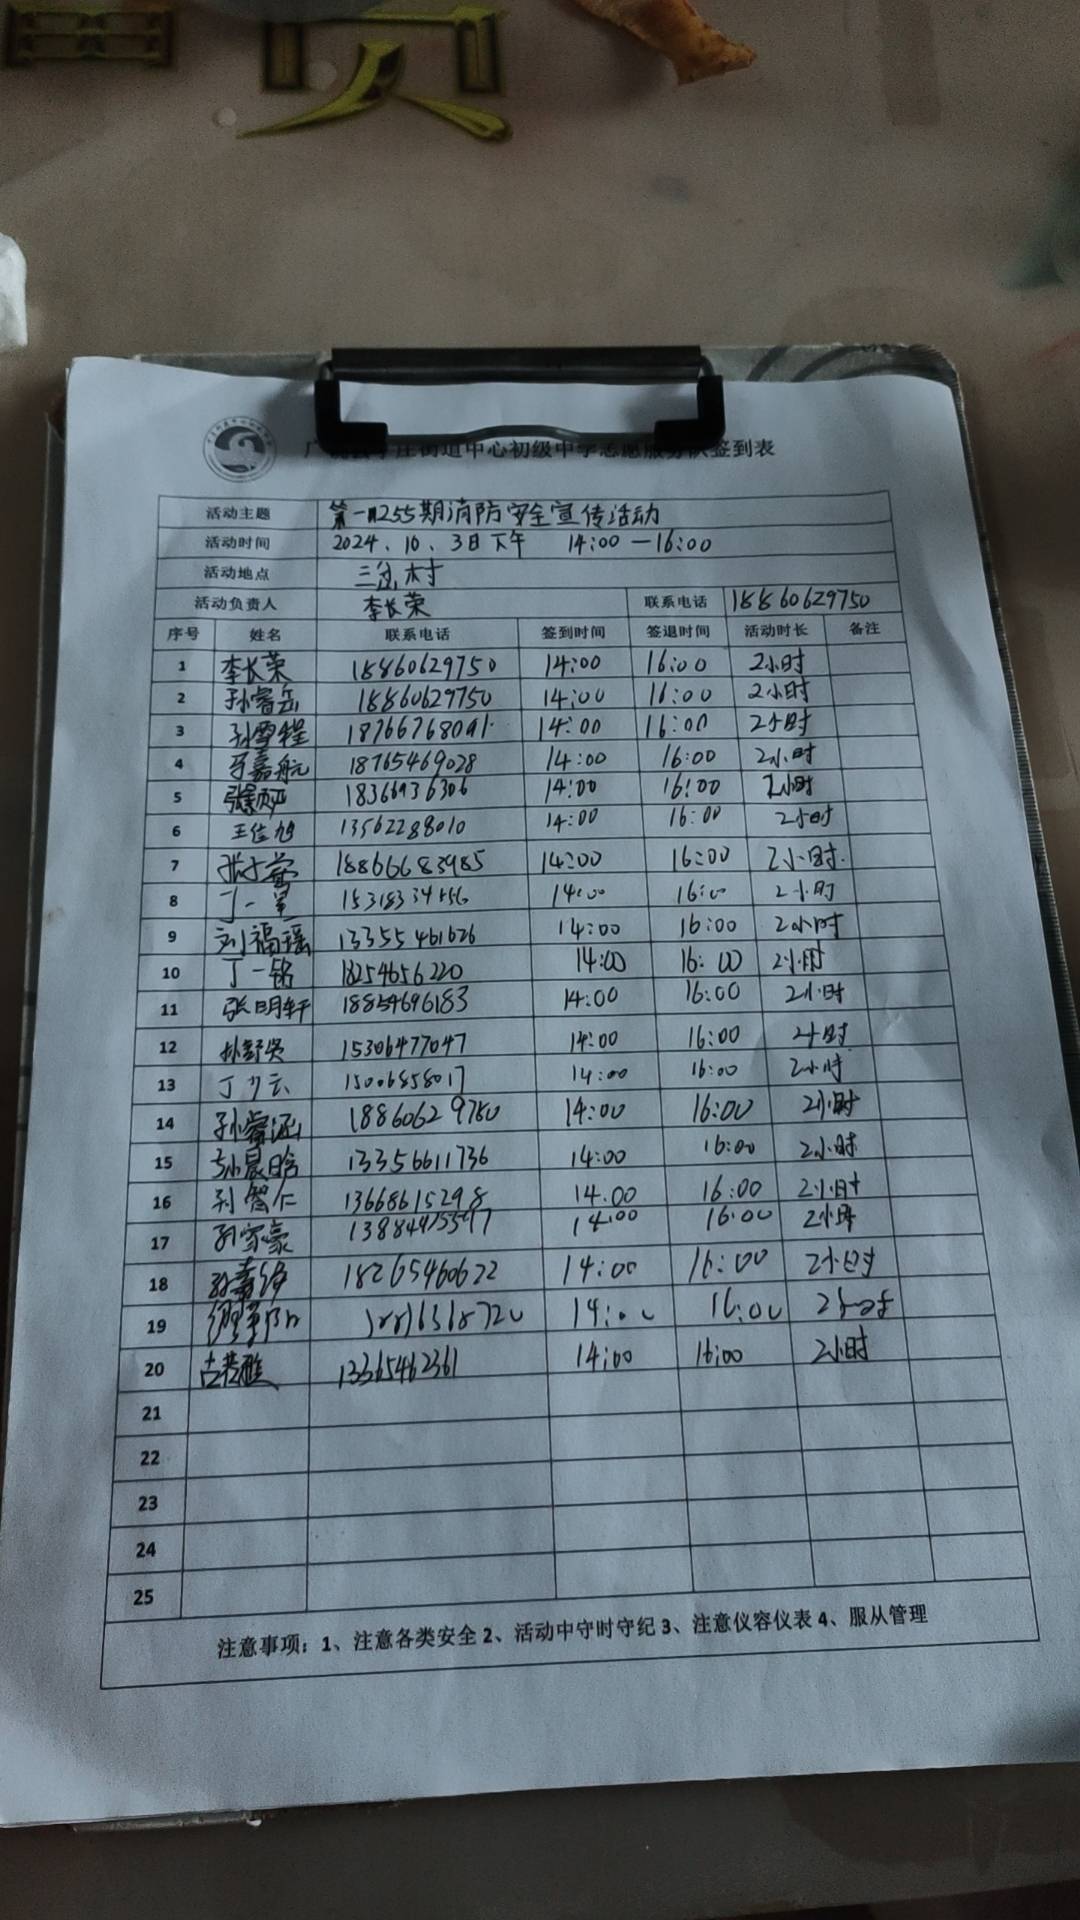 街道中心初级中学志愿服务队签到表
活动主题 第 255期消防安全宣传活动
活动时间 2024.10.3日下午 14:00—16:00
活动地点 三 村
活动负责人 李长荣 联系电话 18860629750
序号 姓名 联系电话 签到时间 签退时间 活动时长 备注
1 李长荣 18860629750 14:00 16:00 2小时
2 孙睿岳 18860629750 14:00 16:00 2小时
3 孙雪程 18766768091 14:00 16:00 2小时
4 嘉航 18765469028 14:00 16:00 2小时
5 18366936306 14:00 16:00 2小时
6 王佳旭 13562288010 14:00 16:00 2小时
7 18866683985 14:00 16:00 2小时.
8 丁一 14:00 16:00 2小时
9 刘福瑶 13355461626 14:00 16:00 2小时
10 丁一铭 18254656220 14:00 16:00 2小时
11 张明轩 18854696183 14:00 16:00 2小时
12 孙舒贤 15306477047 14:00 16:00 2小时
13 丁少云 15006858017 14:00 16:00 2小时
14 孙睿涵 18860629750 14:00 16:00 2小时
15 孙晨晗 13356611736 14:00 16:00 2小时
16 孙智仁 13668615298 14:00 16:00 2小时
17 孙家豪 14:00 16:00 2小时
18 18265460622 14:00 16:00 2小时
19 14:00 16:00 2小时
20 13365462361 14:00 16:00 2小时
21
22
23
24
25
注意事项：1、注意各类安全 2、活动中守时守纪 3、注意仪容仪表 4、服从管理